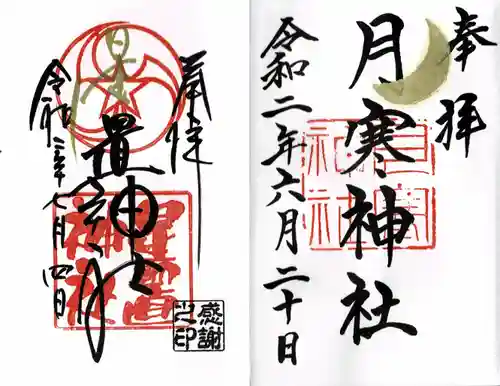 奉拝
月寒神社
月寒
神社
令和二年六月二十日
奉拝
星置神社
星置
神社
令和二年七月四日
感謝
之印